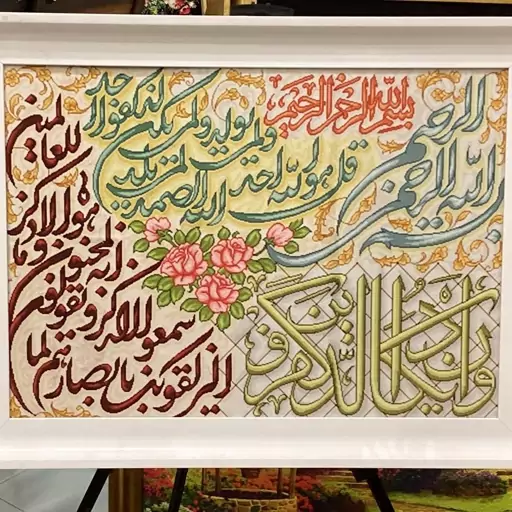 بسم الله الرحمن الرحیم
بسم الله الرحمن الرحیم
قل هو الله احد
الله الصمد لم یلد
ولم یولد ولم یکن
له کفوا احد
وان یکاد الذین کفروا
لیزلقونک بابصارهم لما
سمعوا الذکر و یقولون
انه لمجنون و ما
هو الا ذکر
للعالمین